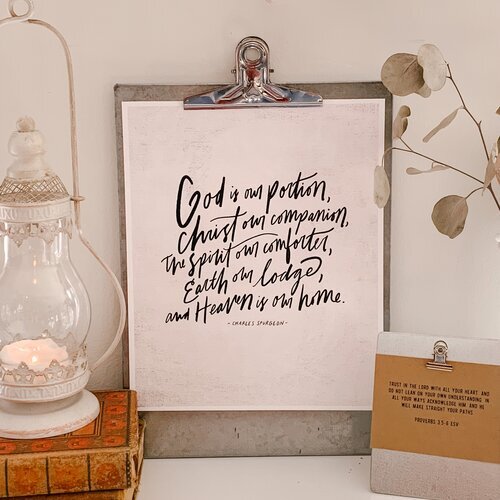 God is our portion,
Christ our companion,
The Spirit our comforter,
Earth our lodge,
and Heaven is our home.
- CHARLES SPURGEON -
TRUST IN THE LORD WITH ALL YOUR HEART, AND
DO NOT LEAN ON YOUR OWN UNDERSTANDING. IN
ALL YOUR WAYS ACKNOWLEDGE HIM, AND HE
WILL MAKE STRAIGHT YOUR PATHS.
PROVERBS 3:5-6 ESV